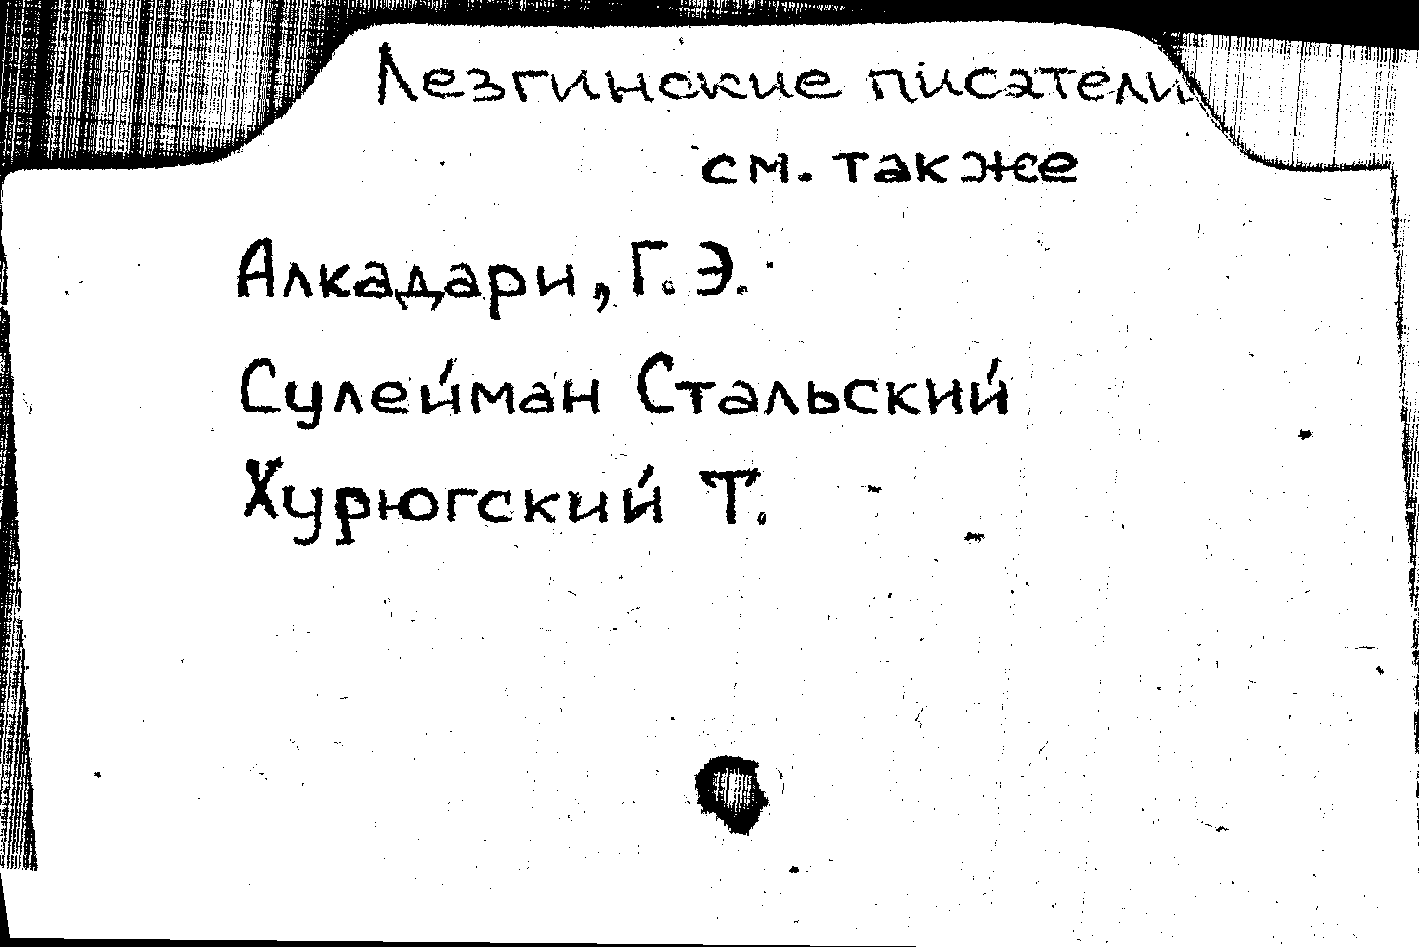 Лезгинские писатели
см. также
Алкадари, Г. Э.
Сулейман Стальский
Хурюгский Т.